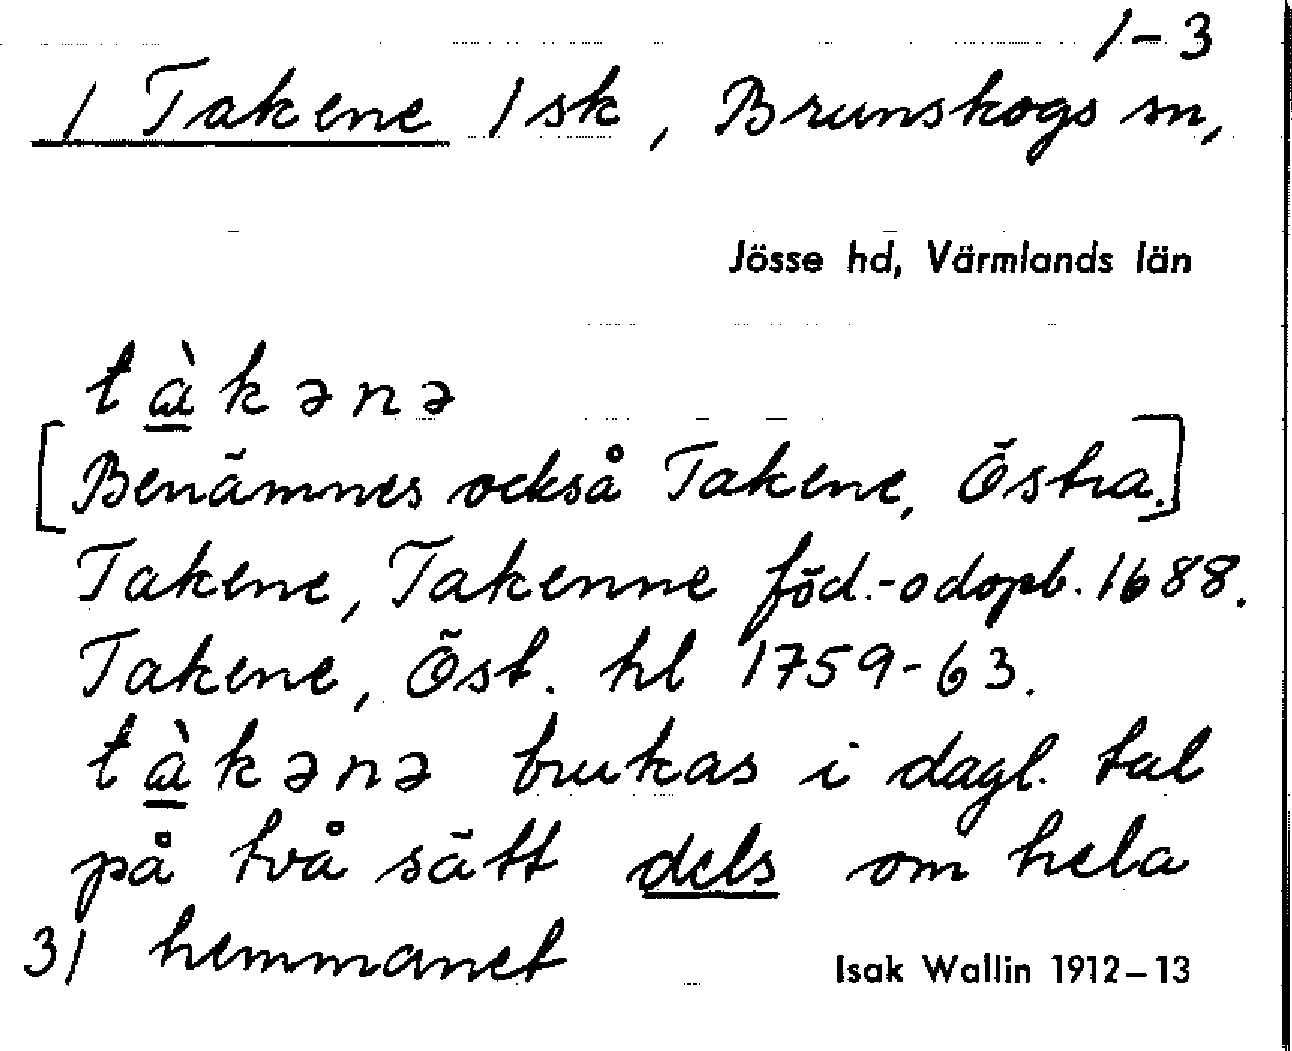 1-3
1 Takene 1 sk, Brunskogs sn,
Jösse hd, Värmlands län
tàkənə
[Benämnes också Takene, Östra.]
Takene, Takenne föd.-o dopb. 1688.
Takene, Öst. hl 1759-63.
tàkənə brukas i dagl. tal
på två sätt dels om hela
3) hemmanet
Isak Wallin 1912–13